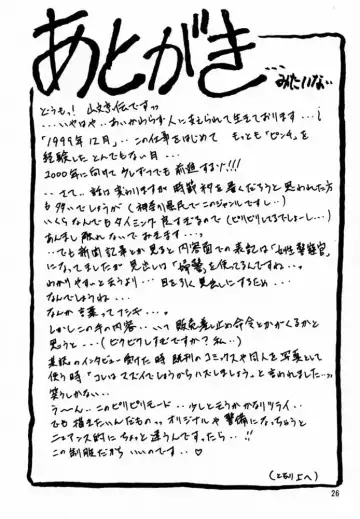 あとがき
…みたいな
どうもっ! 山文京伝ですっ
…いやはや‥あいかわらず人に支えられて生きております…
「1999年12月」‥この仕事をはじめて もっとも「ピンチ」を
経験したとんでもない月…
2000年に向けて少しずつでも前進するぞ!!!
‥さて‥話は変わりますが時節柄を書くだろうと思われた方
も多いでしょうが(神奈川県民でこのジャンルですし‥)
いくらなんでもタイミング良すぎるので(ビリビリしてるでしょーし…)
あんまし触れないでおきます…。
‥でも新聞記事とか見ると内容面での表記は「女性警察官」
になってましたが見出しは「婦警」を使ってるんですね…。
わかりやすいと言うより…目を引く見出しにするため…
なんでしょうね…
なんか言葉ってフシギ…。
しかしこの本の内容‥いつ販売差し止め命令とかがくるかと
思うと…(ビクビクしすぎですか?私‥)
某誌のインタビュー受けた時 既刊のコミックスや同人を写真として
使う時「コレはマズイでしょうからハズしましょう」と言われました…
笑うしかない…
う〜ん‥このビリビリモード‥少しと言うかかなりツライ‥
でも描きたいんだもの〟オリジナルや警備になっちゃうと
ニュアンス的にちょっと違うんですったら‥!!
この制服だからいいのです‥♡
(となりよへ)
26